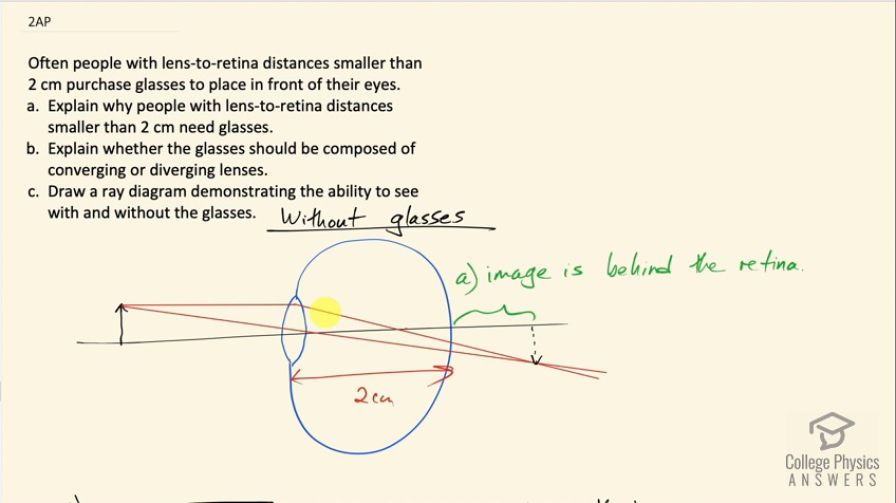 2AP
Often people with lens-to-retina distances smaller than
2 cm purchase glasses to place in front of their eyes.
a. Explain why people with lens-to-retina distances
smaller than 2 cm need glasses.
b. Explain whether the glasses should be composed of
converging or diverging lenses.
c. Draw a ray diagram demonstrating the ability to see
with and without the glasses.
Without glasses
a) image is behind the retina.
2cm
College Physics
ANSWERS